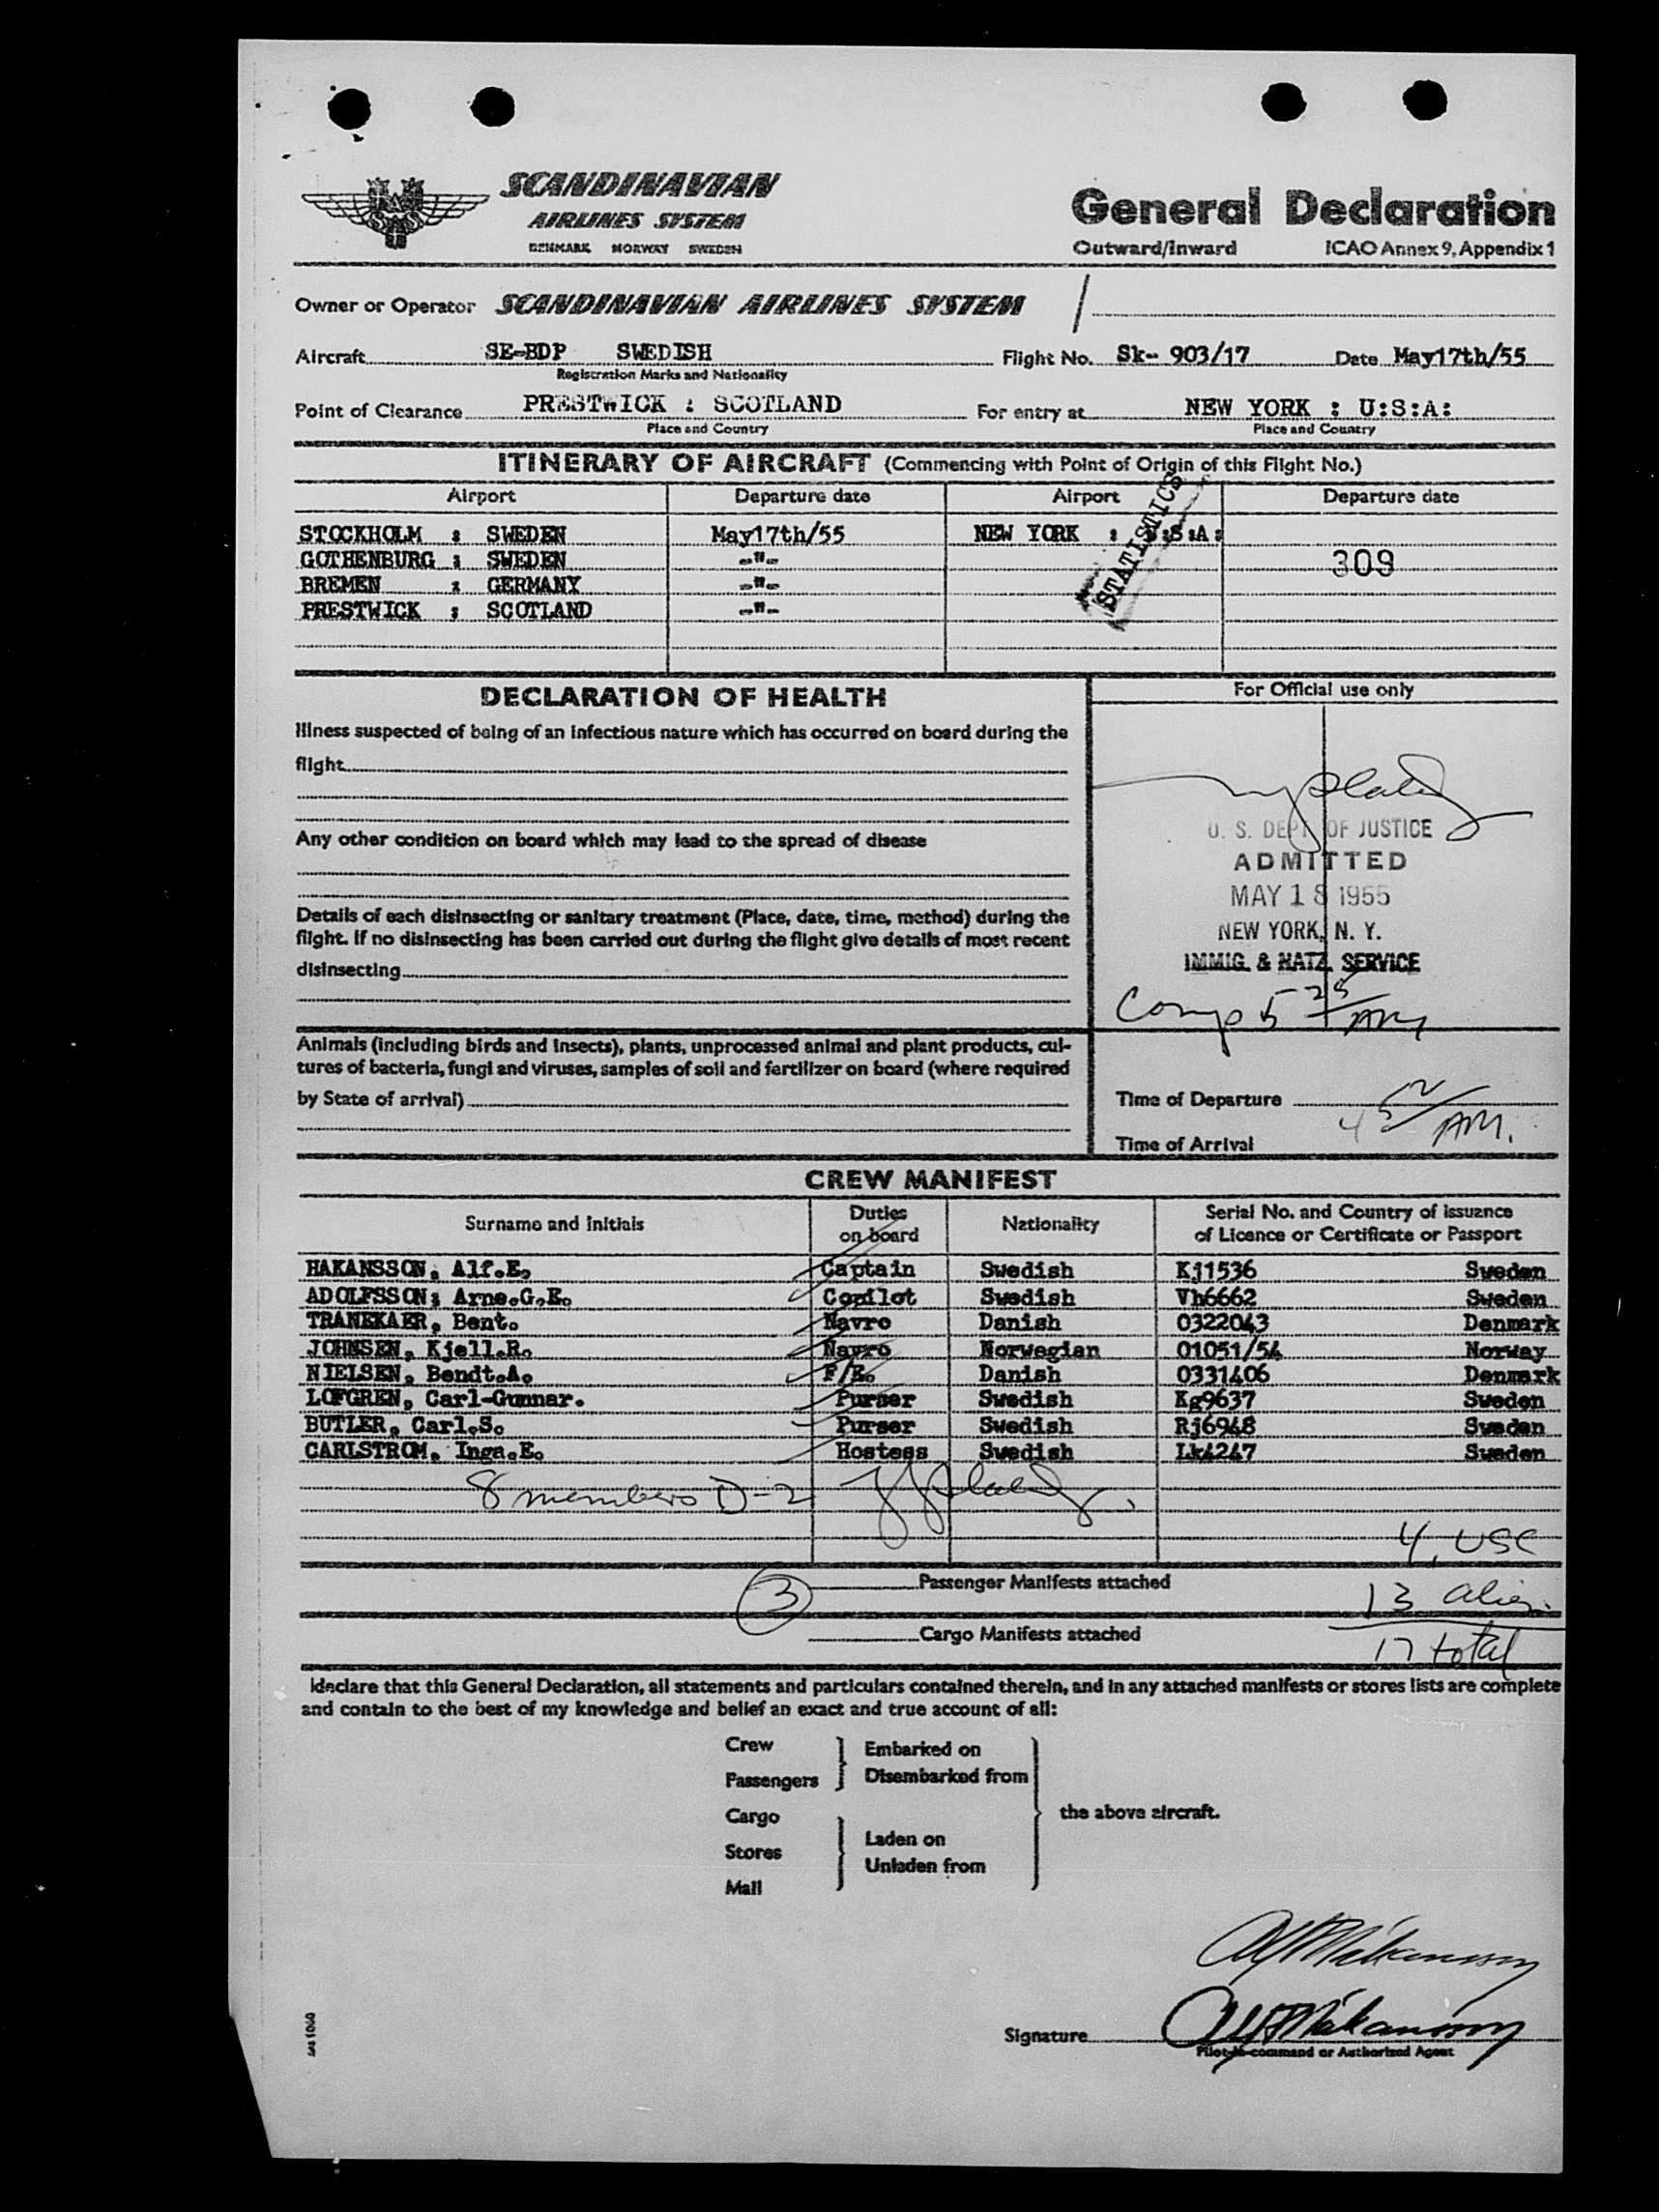 SCANDINAVIAN
AIRLINES SYSTEM
DENMARK NORWAY SWEDEN
General Declaration
Outward/Inward ICAO Annex 9, Appendix 1
Owner or Operator SCANDINAVIAN AIRLINES SYSTEM
Aircraft SE-BDP SWEDISH Flight No. Sk- 903/17 Date May17th/55
Registration Marks and Nationality
Point of Clearance PRESTWICK : SCOTLAND For entry at NEW YORK : U:S:A:
Place and Country Place and Country
ITINERARY OF AIRCRAFT (Commencing with Point of Origin of this Flight No.)
Airport Departure date Airport Departure date
STOCKHOLM : SWEDEN May17th/55 NEW YORK : U:S:A:
GOTHENBURG : SWEDEN -"- 309
BREMEN : GERMANY -"-
PRESTWICK : SCOTLAND -"-
STATISTICS
DECLARATION OF HEALTH
For Official use only
Illness suspected of being of an infectious nature which has occurred on board during the
flight
Any other condition on board which may lead to the spread of disease
U. S. DEPT. OF JUSTICE
ADMITTED
MAY 18 1955
NEW YORK, N. Y.
IMMIG. & NATZ. SERVICE
Details of each disinsecting or sanitary treatment (Place, date, time, method) during the
flight. If no disinsecting has been carried out during the flight give details of most recent
disinsecting
Comp 5 25 AM
Animals (including birds and insects), plants, unprocessed animal and plant products, cul-
tures of bacteria, fungi and viruses, samples of soil and fertilizer on board (where required
by State of arrival)
Time of Departure
Time of Arrival AM.
CREW MANIFEST
Surname and Initials Duties on board Nationality Serial No. and Country of issuance of Licence or Certificate or Passport
HAKANSSON, Alf.E. Captain Swedish Kj1536 Sweden
ADOLFSSON, Arne.G.E. Copilot Swedish Vh6662 Sweden
TRANEKAER, Bent. Navro Danish 0322043 Denmark
JOHNSEN, Kjell.R. Navro Norwegian 01051/54 Norway
NIELSEN, Bendt.A. F/E. Danish 0331406 Denmark
LOFGREN, Carl-Gunnar. Purser Swedish Kg9637 Sweden
BUTLER, Carl.S. Purser Swedish Rj6948 Sweden
CARLSTROM, Inga.E. Hostess Swedish Lk4247 Sweden
8 members D-2
4 USC
3 Passenger Manifests attached 13 alien
Cargo Manifests attached 17 total
I declare that this General Declaration, all statements and particulars contained therein, and in any attached manifests or stores lists are complete
and contain to the best of my knowledge and belief an exact and true account of all:
Crew
Passengers
Embarked on
Disembarked from
Cargo
Stores
Mail
Laden on
Unladen from
the above aircraft.
Alf Håkansson
Signature Alf Håkansson
Pilot-in-command or Authorized Agent